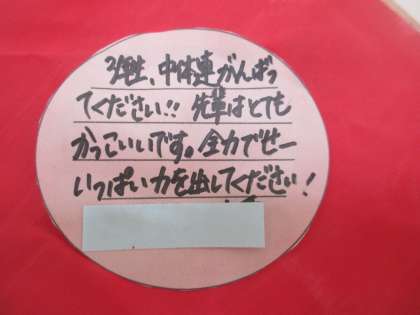 3年生、中体連がんばっ
てください!! 先輩はとても
かっこいいです。全力でせー
いっぱい力を出してください!